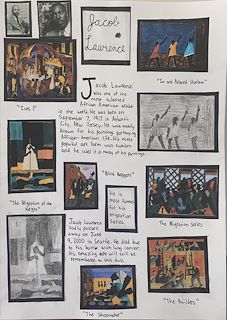 Jacob
Lawrence
"In and Around Harlem"
Jacob Lawrence
was one of the
most talented
African American artists
in the world. He was born on
September 7, 1917 in Atlantic
City, New Jersey. He was mostly
known for his paintings portraying
African-American life. His most
popular art form was cubism
and he used it in many of his paintings.
"Blind Beggars"
"The Migration of the
Negro"
He is
most famous
for his
migration
series
The Migration Series
Jacob Lawrence
sadly passed
away on June
9, 2000 in Seattle. He died due
to his battle with lung cancer.
His amazing arts will still be
remembered to this day.
"The Shoemaker"
"The Builders"